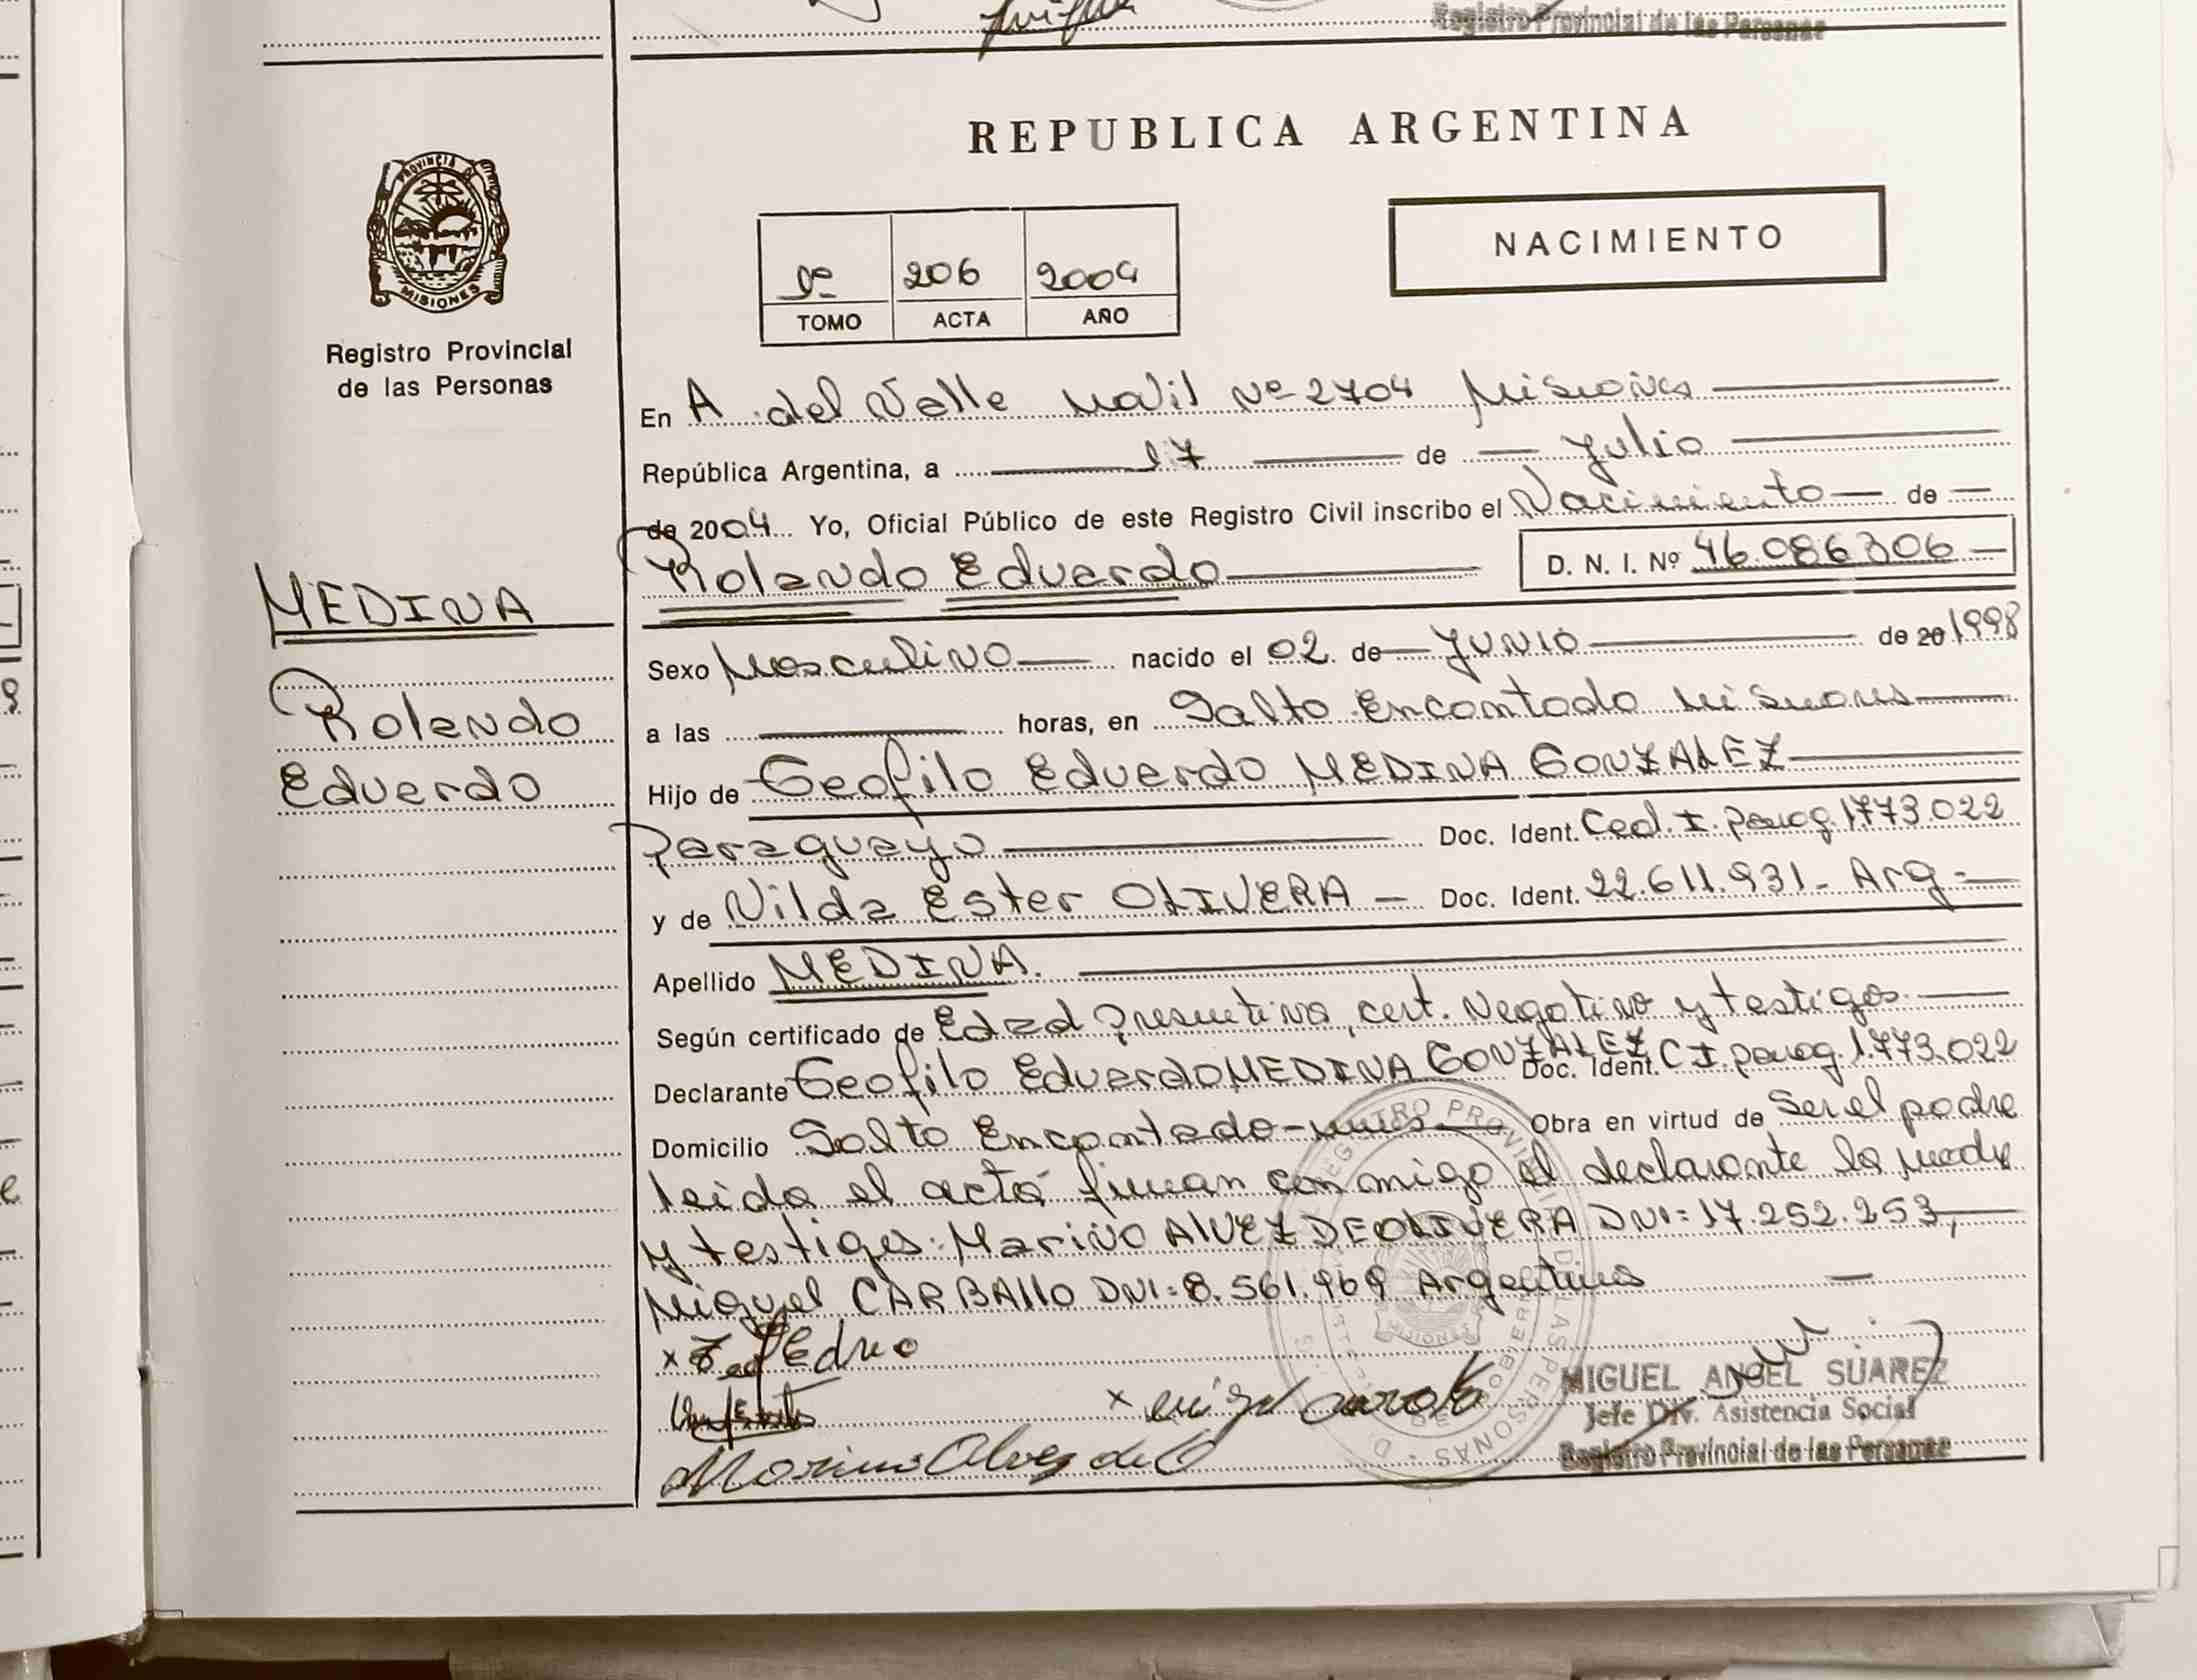 Registro Provincial de las Personas
REPUBLICA ARGENTINA
PROVINCIA DE
MISIONES
Registro Provincial
de las Personas
1º 206 2004
TOMO ACTA AÑO
NACIMIENTO
En A. del Valle Movil Nº 2704 Misiones
República Argentina, a 17 de Julio
de 2004 Yo, Oficial Público de este Registro Civil inscribo el Nacimiento de
Rolando Eduardo D. N. I. Nº 46.086306
MEDINA
Rolando
Eduardo
Sexo Masculino nacido el 02 de JUNIO de 20 1998
a las horas, en Salto Encantado Misiones
Hijo de Teofilo Eduardo MEDINA GONZALEZ
Paraguayo Doc. Ident. Ced. I. parag. 1773.022
y de Nilda Ester OLIVERA Doc. Ident. 22.611.931 - Arg.
Apellido MEDINA.
Según certificado de Edad Presuntiva, cert. Negativo y testigos
Declarante Teofilo Eduardo MEDINA GONZALEZ Doc. Ident. C I. parag. 1.773.022
Domicilio Salto Encantado - Obra en virtud de Ser el padre
leida el acta firman con migo el declarante la madre
y testigos: Marino AlVEZ DE OLIVERA DNI: 17.252.253,
Miguel CARBAllO DNI: 8.561.969 Argentinos
MIGUEL ANGEL SUAREZ
Jefe Div. Asistencia Social
Registro Provincial de las Personas